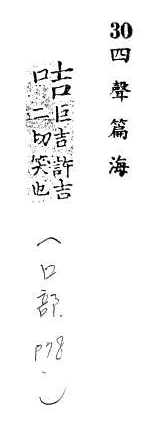 30四聲篇海
巨吉許吉
二切笑也
(口部 P78.)